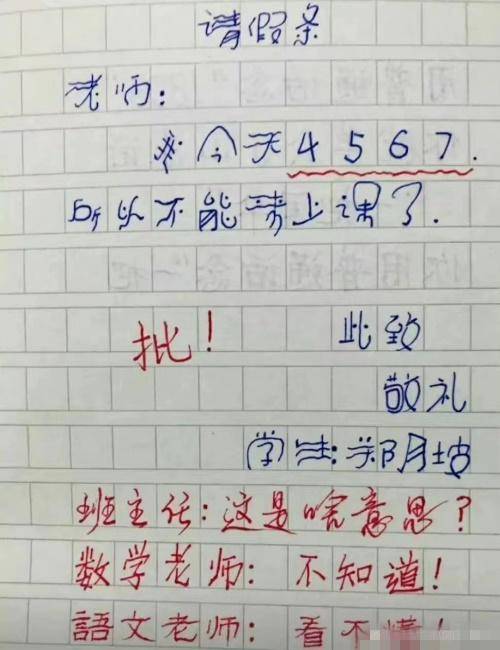 请假条
老师：
我今天4567.
所以不能来上课了.
批！
此致
敬礼
学生:郑月坡
班主任:这是啥意思?
数学老师：不知道!
語文老师：看不懂!